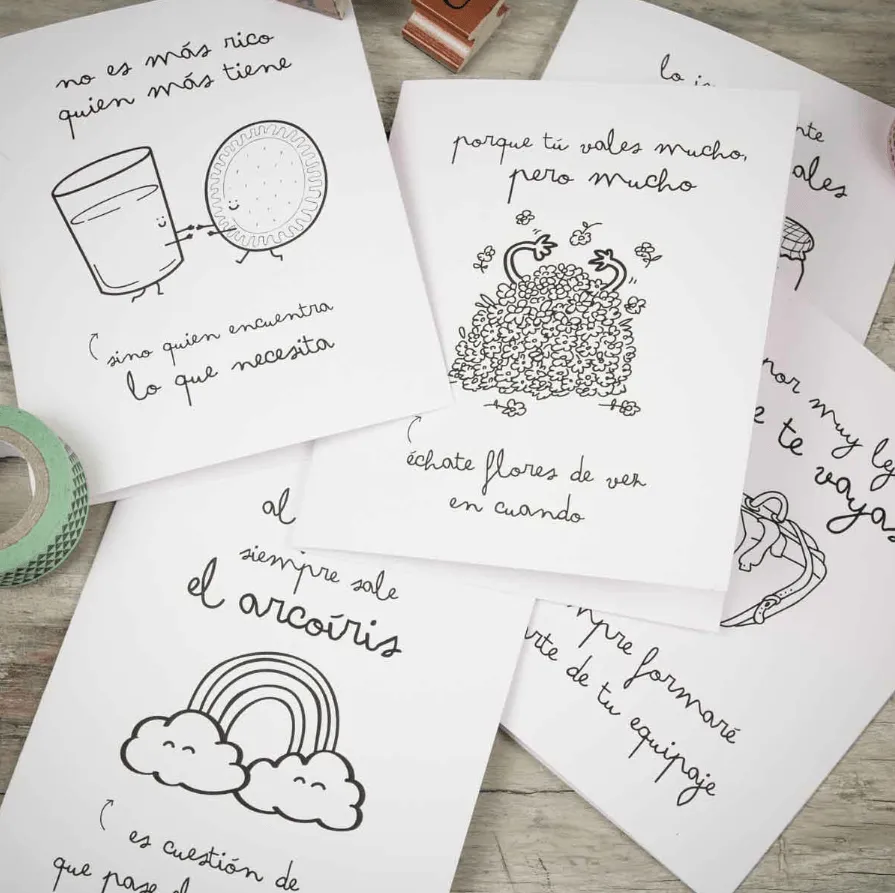 no es más rico
quien más tiene
sino quien encuentra
lo que necesita
porque tú vales mucho,
pero mucho
échate flores de vez
en cuando
lo
ales
por muy
te vayas
formaré
de tu equipaje
al
siempre sale
el arcoíris
es cuestión de
que pase